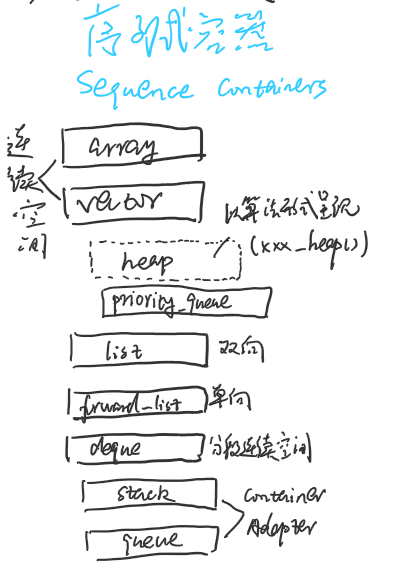 序列式容器
Sequence Containers
连续空间
array
vector
以算法形式呈现
(xxx_heap())
heap
priority_queue
list 双向
forward_list 单向
deque 分段连续空间
stack
Container
Adapter
queue